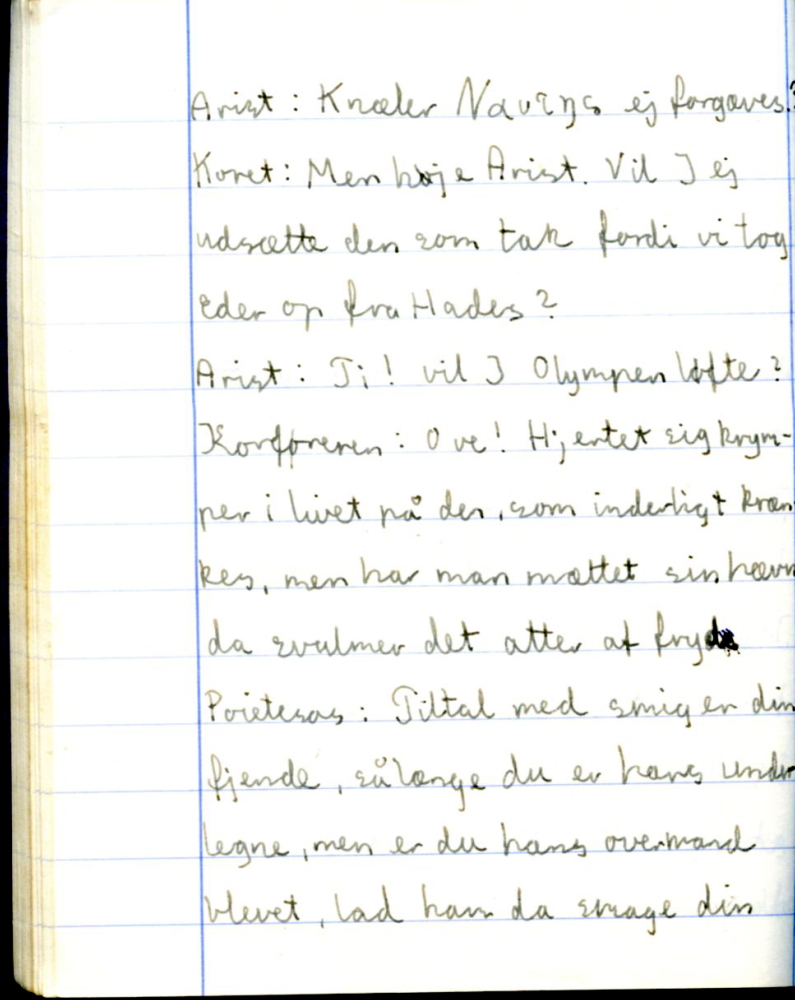 Arist: Knæler Ναύτης ej forgæves?
Koret: Men høje Arist. Vil I ej
udsætte den som tak fordi vi tog
eder op fra Hades?
Arist: Ti! vil I Olympen løfte?
Korføreren: O ve! Hjertet sig krym-
per i livet på den, som inderligt kræn
kes, men har man mættet sin hævn
da svulmer det atter af fryd
Poietesas: Tiltal med smig er din
fjende, sålænge du er hans under
legne, men er du hans overmand
blevet, lad ham da smage din